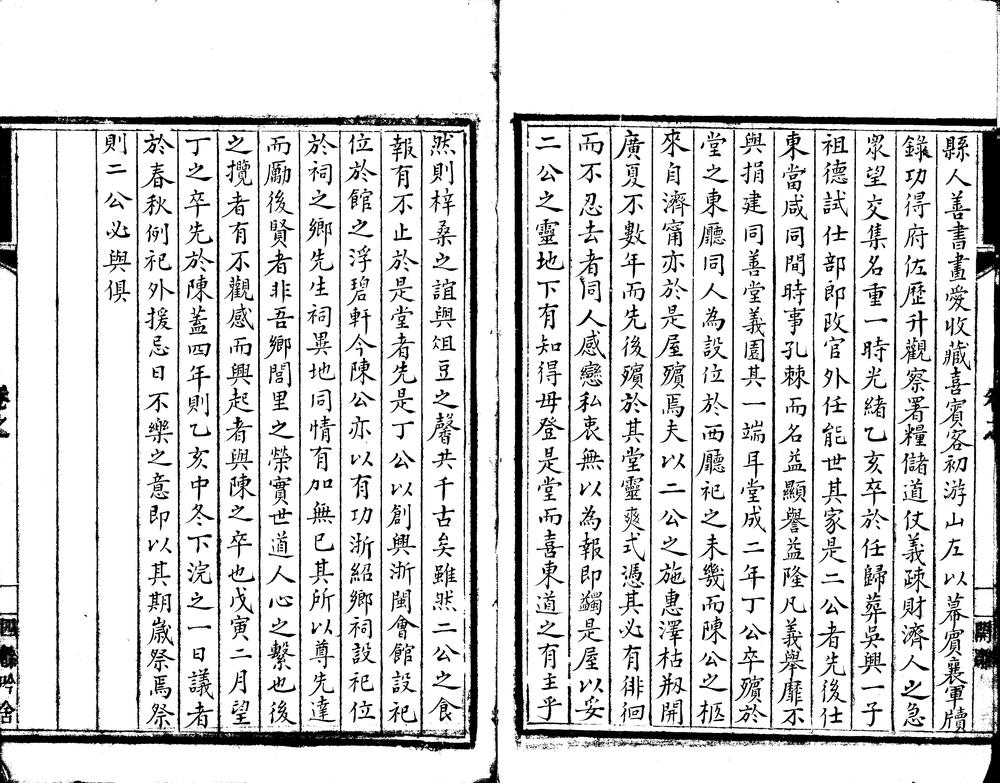 縣人善書畫愛收藏喜賓客初游山左以幕賓襄軍牘
錄功得府佐歷升觀察署糧儲道仗義疎財濟人之急
眾望交集名重一時光緒乙亥卒於任歸葬吳興一子
祖德試仕部郎改官外任能世其家是二公者先後仕
東當咸同間時事孔棘而名益顯譽益隆凡義舉靡不
與捐建同善堂義園其一端耳堂成二年丁公卒殯於
堂之東廳同人為設位於西廳祀之未幾而陳公之柩
來自濟甯亦於是屋殯焉夫以二公之施惠澤枯剏開
廣夏不數年而先後殯於其堂靈爽式憑其必有徘徊
而不忍去者同人感戀私衷無以為報即蠲是屋以妥
二公之靈地下有知得毋登是堂而喜東道之有主乎
然則梓桑之誼與俎豆之馨共千古矣雖然二公之食
報有不止於是堂者先是丁公以創興浙閩會館設祀
位於館之浮碧軒今陳公亦以有功浙紹鄉祠設祀位
於祠之鄉先生祠異地同情有加無已其所以尊先達
而勵後賢者非吾鄉閭里之榮實世道人心之繫也後
之攬者有不觀感而興起者與陳之卒也戊寅二月望
丁之卒先於陳蓋四年則乙亥中冬下浣之一日議者
於春秋例祀外援忌日不樂之意即以其期歲祭焉祭
則二公必與俱